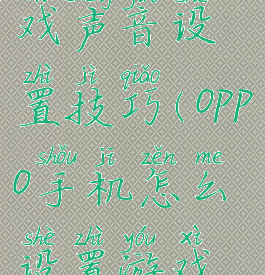 戏声音设
zhì jì qiǎo
置技巧(OPP
shǒu jī zěn me
O手机怎么
shè zhì yóu xì
设置游戏